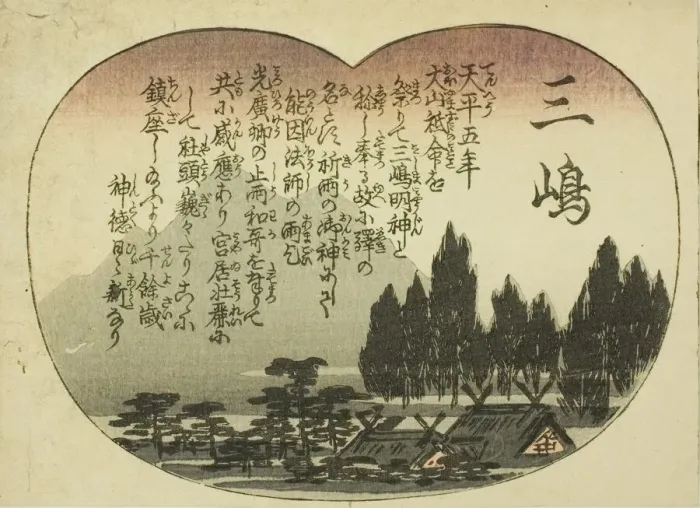 三嶋
天平五年
大山祗命を
祭りて三嶋明神と
称し奉る故に驛の
名とす祈雨の御神にして
能因法師の雨乞
光廣卿の止雨和哥を奉りて
共に感應あり宮居壮麗に
して社頭巍々たり
鎮座しより千餘歳
神徳日々新なり